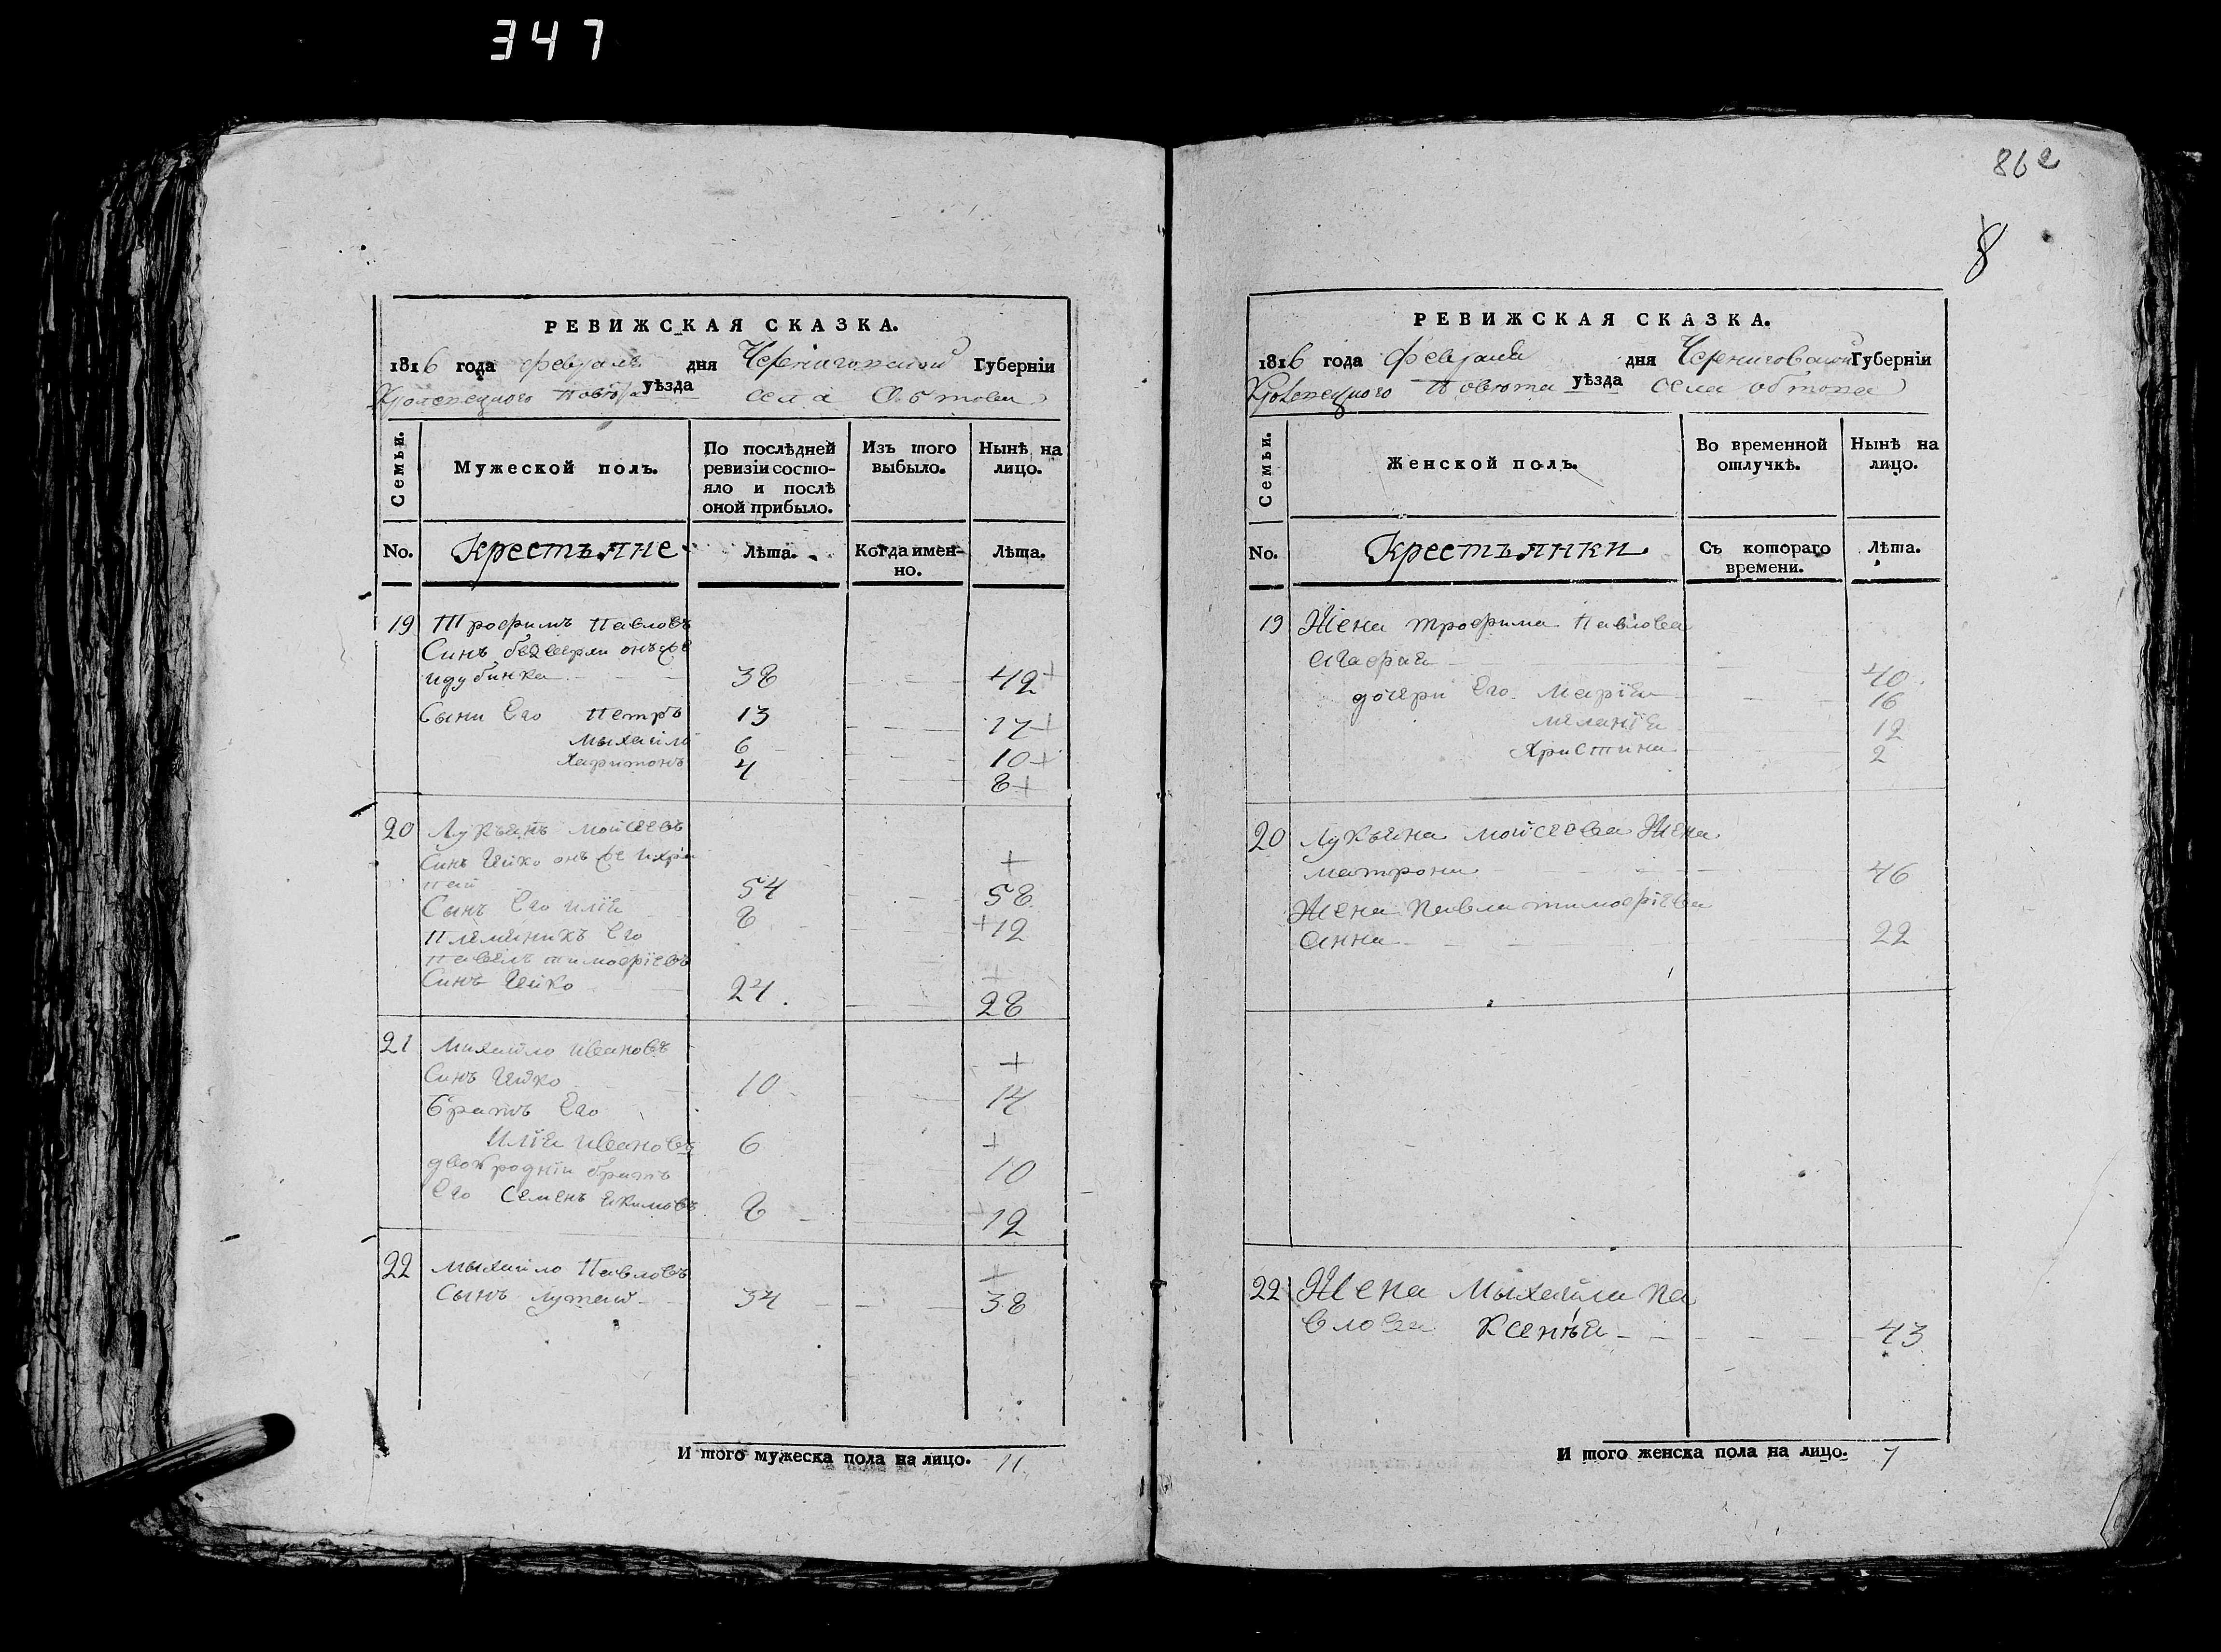 347
РЕВИЖСКАЯ СКАЗКА.
1816 года февраля дня Черниговской Губерніи
Кролевецкого повѣта уѣзда села Обтова
Семьи.
Мужеской полъ.
По послѣдней ревизіи состо-
яло и послѣ
оной прибыло.
Изъ того
выбыло.
Нынѣ на
лицо.
No.
Крестъяне
Лѣта.
Когда имен-
но.
Лѣта.
19 Трофимъ Павловъ
Синъ онъ же
идубинка 38 42+
Сыни Его Петръ 13 17+
Мыхайло 6 10+
Харитонъ 4 8+
20 Лукъянъ Мойсеевъ
Синъ онъ же +
54 58
Сынъ Его Илія 8 +12
Племѣникъ Его
Павелъ Тимофіевъ +
Синъ 24. 28
21 Михайло Ивановъ +
Синъ 10 14
братъ Его
Илія Ивановъ 6 + 10
двоюродніи братъ
Его Семенъ Якимовъ 8 + 12
22 Мыхайло Павловъ +
Сынъ 34 38
И того мужеска пола на лицо. 11
862
8
РЕВИЖСКАЯ СКАЗКА.
1816 года февраля дня Черниговской Губерніи
Кролевецкого Повѣта уѣзда села Обтова
Семьи.
Женской полъ.
Во временной
отлучкѣ.
Нынѣ на
лицо.
No.
Крестъянки
Съ котораго
времени.
Лѣта.
19 Жена Трофима Павлова
Агафия 40
дочери Его Марія 16
Меланія 12
Христина 2
20 Лукъяна Мойсеева Жена
Матрона 46
Жена Павла Тимофіева
Анна 22
22 Жена Мыхайла Па
влова Ксенъя 43
И того женска пола на лицо. 7